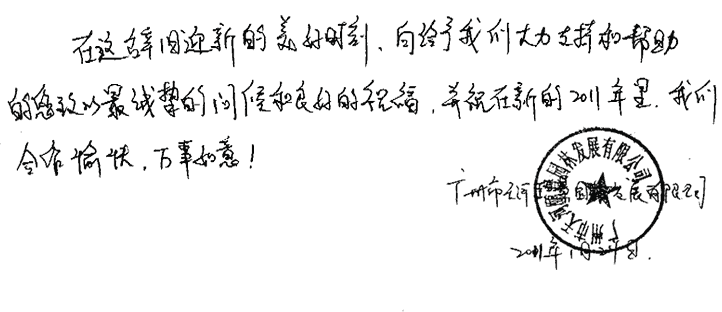 在这辞旧迎新的美好时刻、向给予我们大力支持和帮助
的您致以最诚挚的问候和良好的祝福，并祝在新的2011年里，我们
合作愉快，万事如意！
广州市天河园林发展有限公司
2011年1月24日.